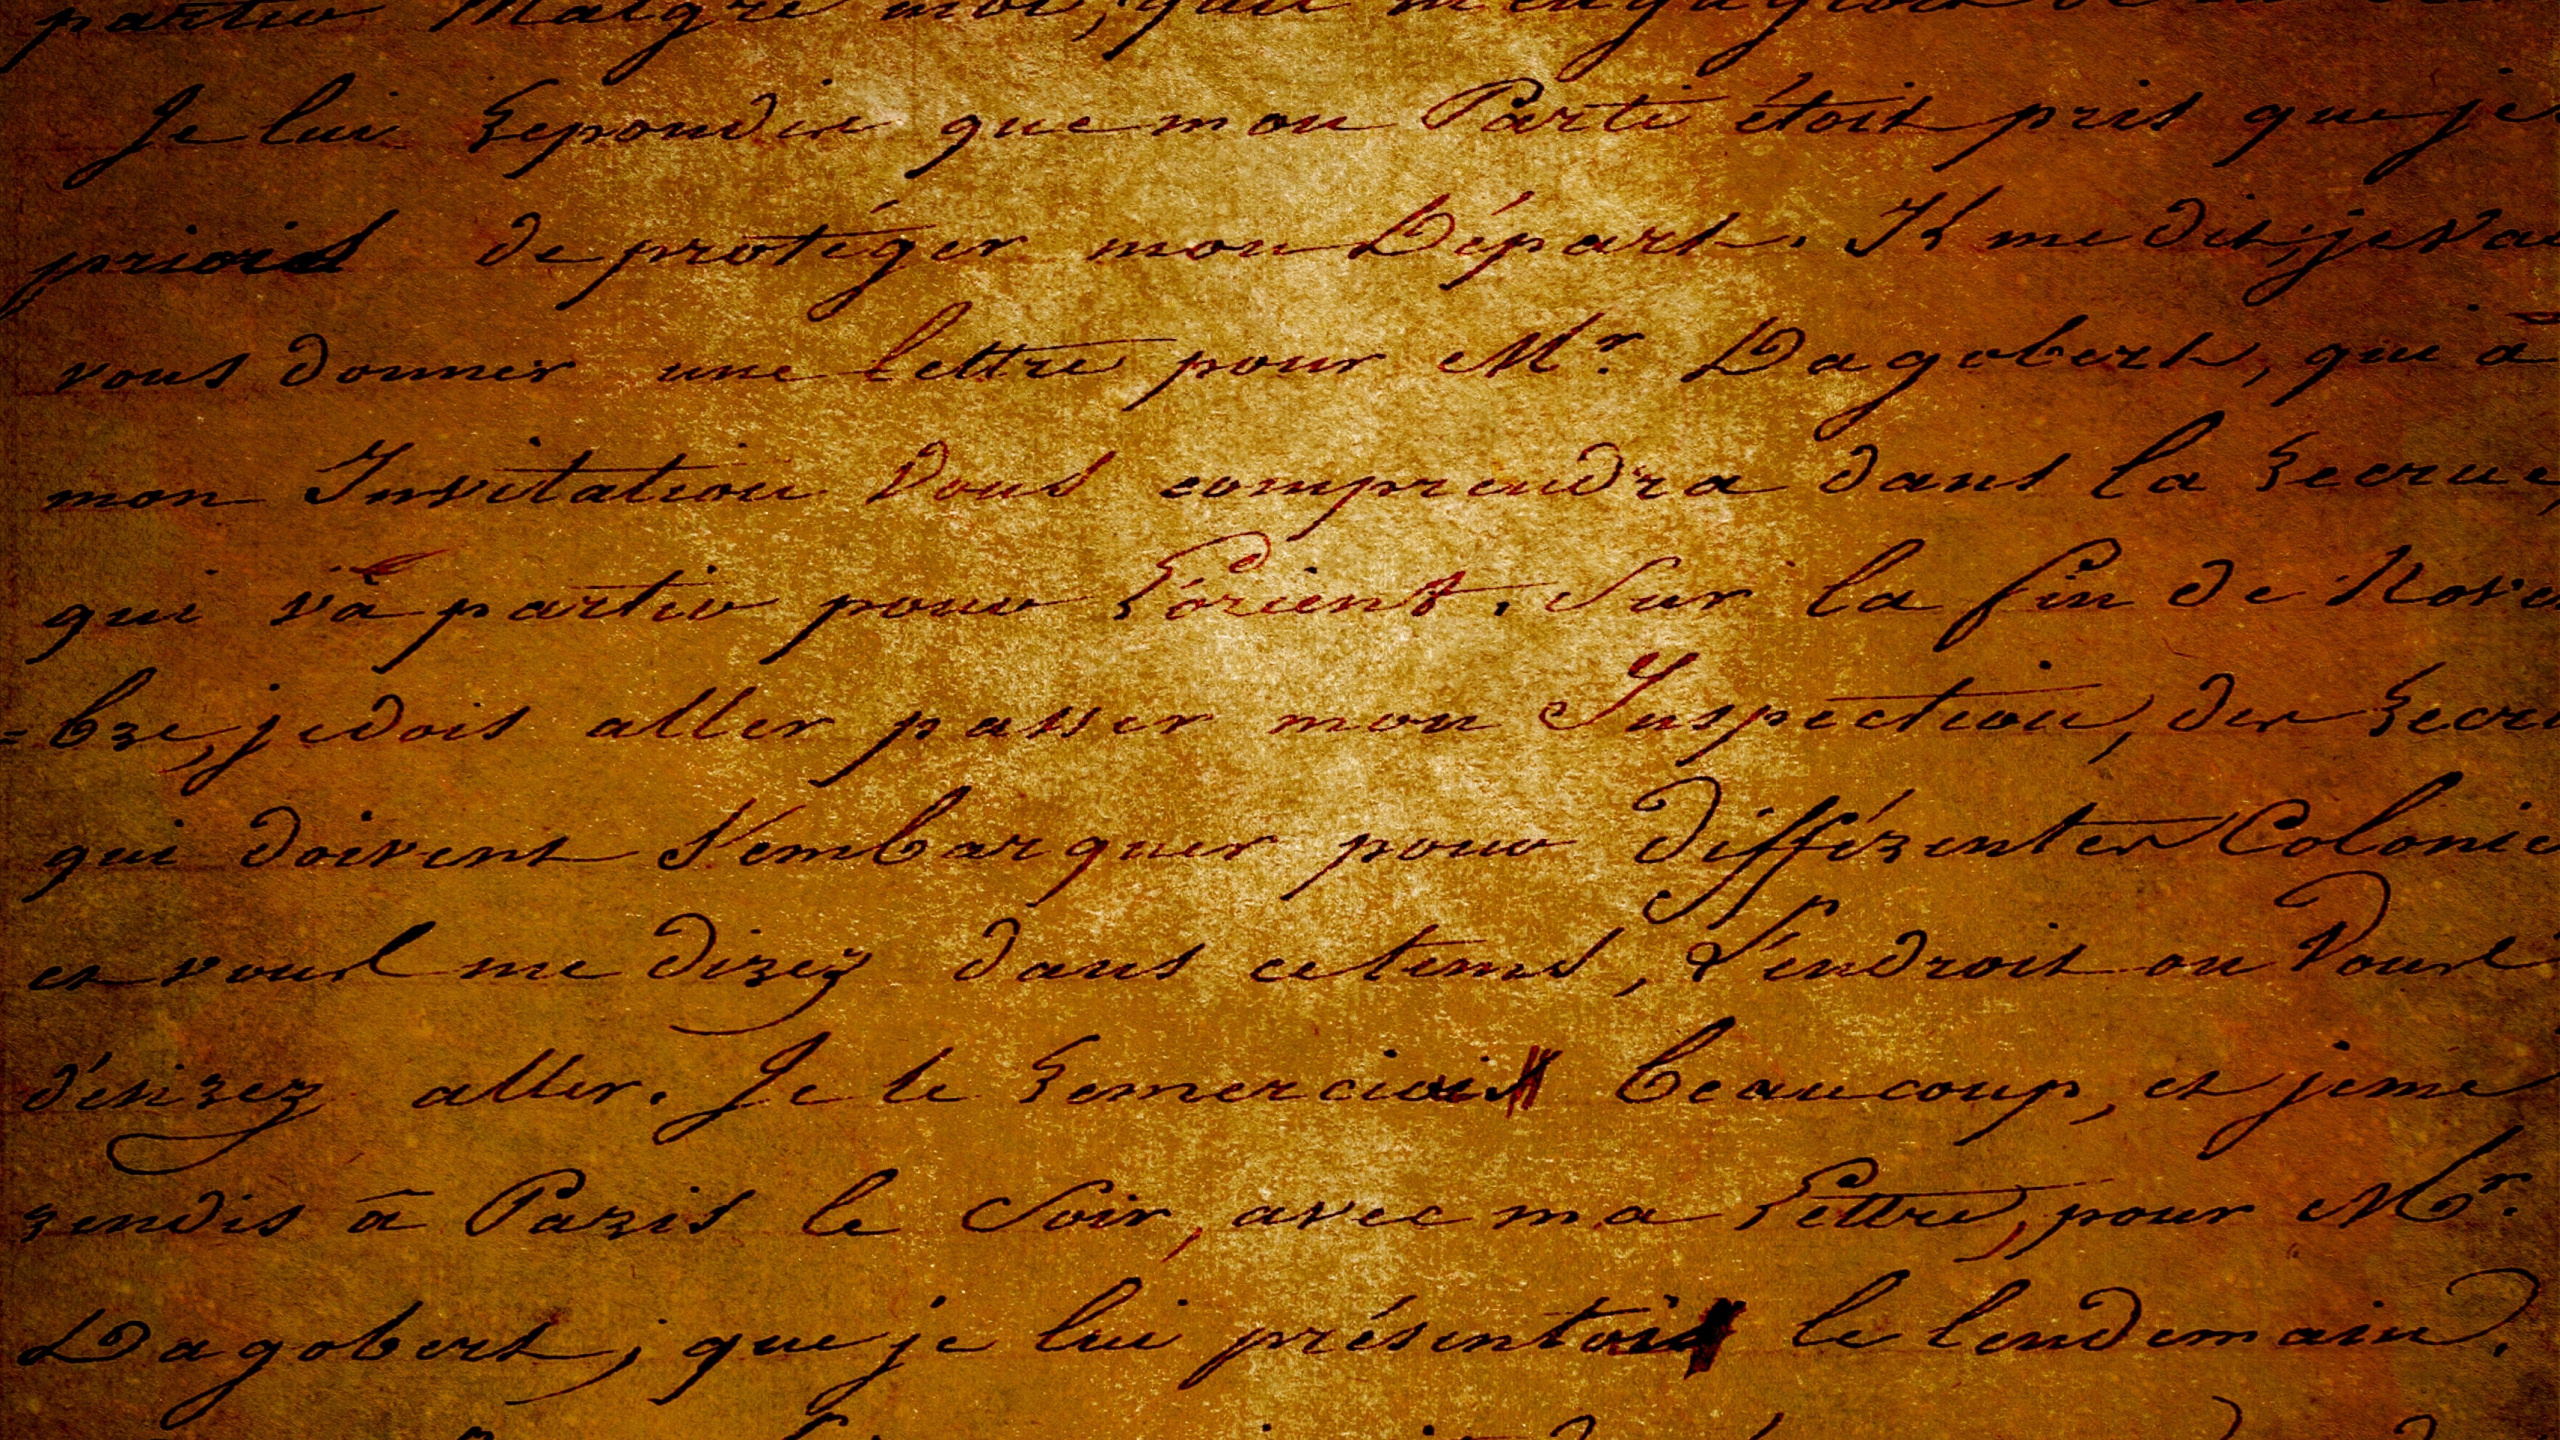 partir Malgré moi,
Je lui Repondis que mon Parti étoit pris que je
priois de protéger mon Départ. Il me dit, je vai
vous donner une lettre pour Mr. Dagobert, qui à
mon Invitation Vous comprendra dans la Recrue,
qui va partir pour L'orient. Sur la fin de Nove
=bre, je dois aller passer mon Inspection, des Recru
qui doivent S'embarquer pour différentes Colonie
et vous me direz dans ce tems, L'endroit ou Vous
désirez aller. Je le Remerciai beaucoup, et je me
rendis à Paris le Soir, avec ma Lettre, pour Mr.
Dagobert, que je lui présentai le lendemain.